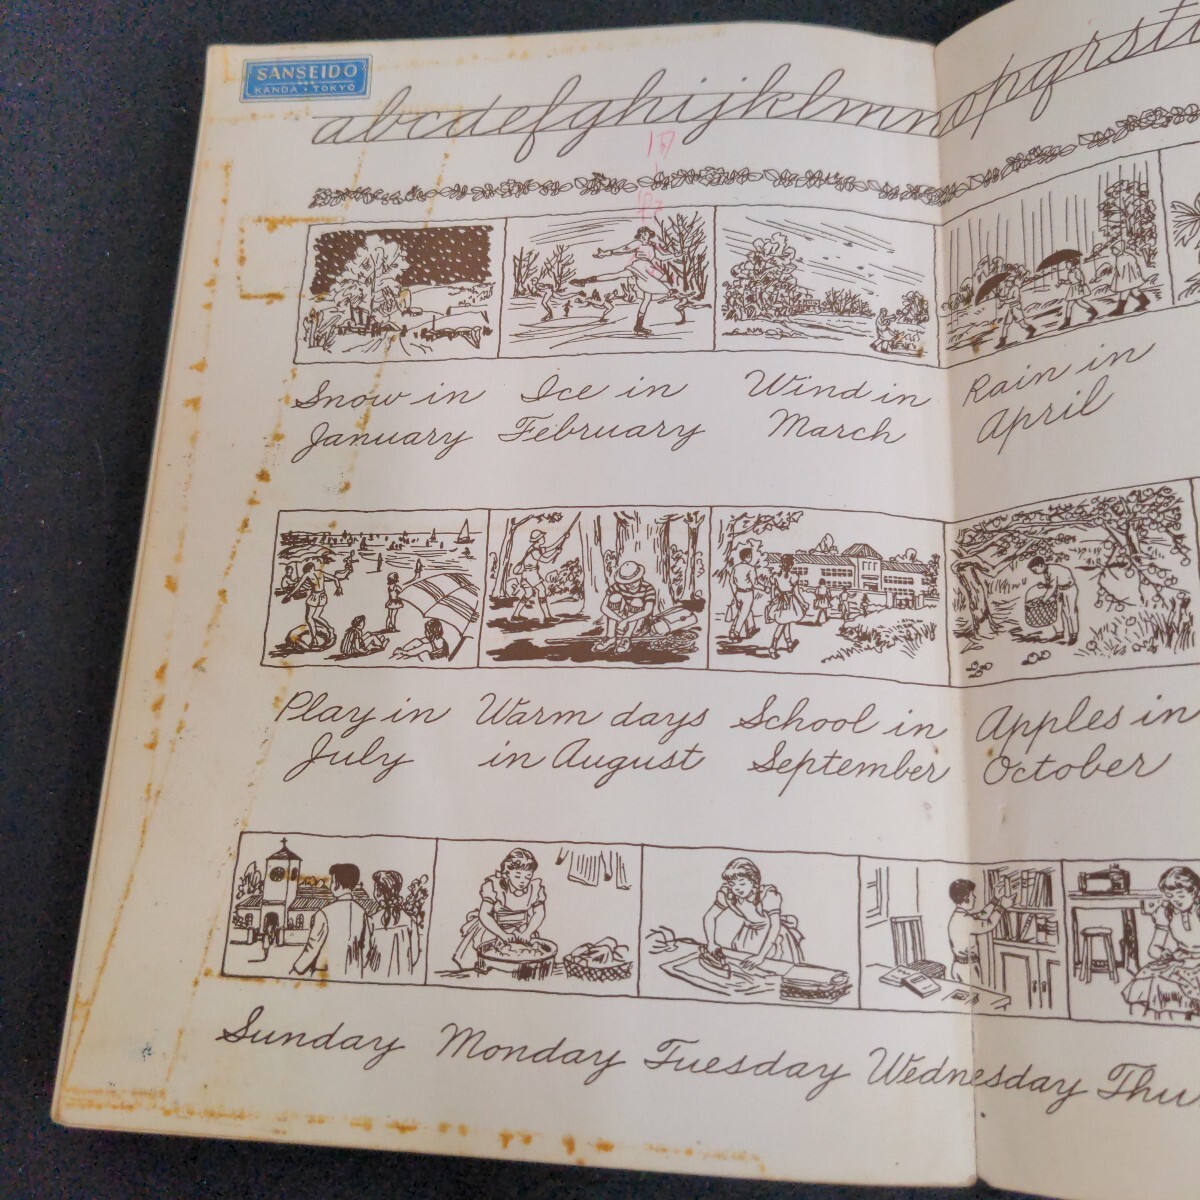 SANSEIDO
KANDA • TOKYO
abcdefghijklmnopqrst
Snow in January
Ice in February
Wind in March
Rain in April
Play in July
Warm days in August
School in September
Apples in October
Sunday Monday Tuesday Wednesday Thu